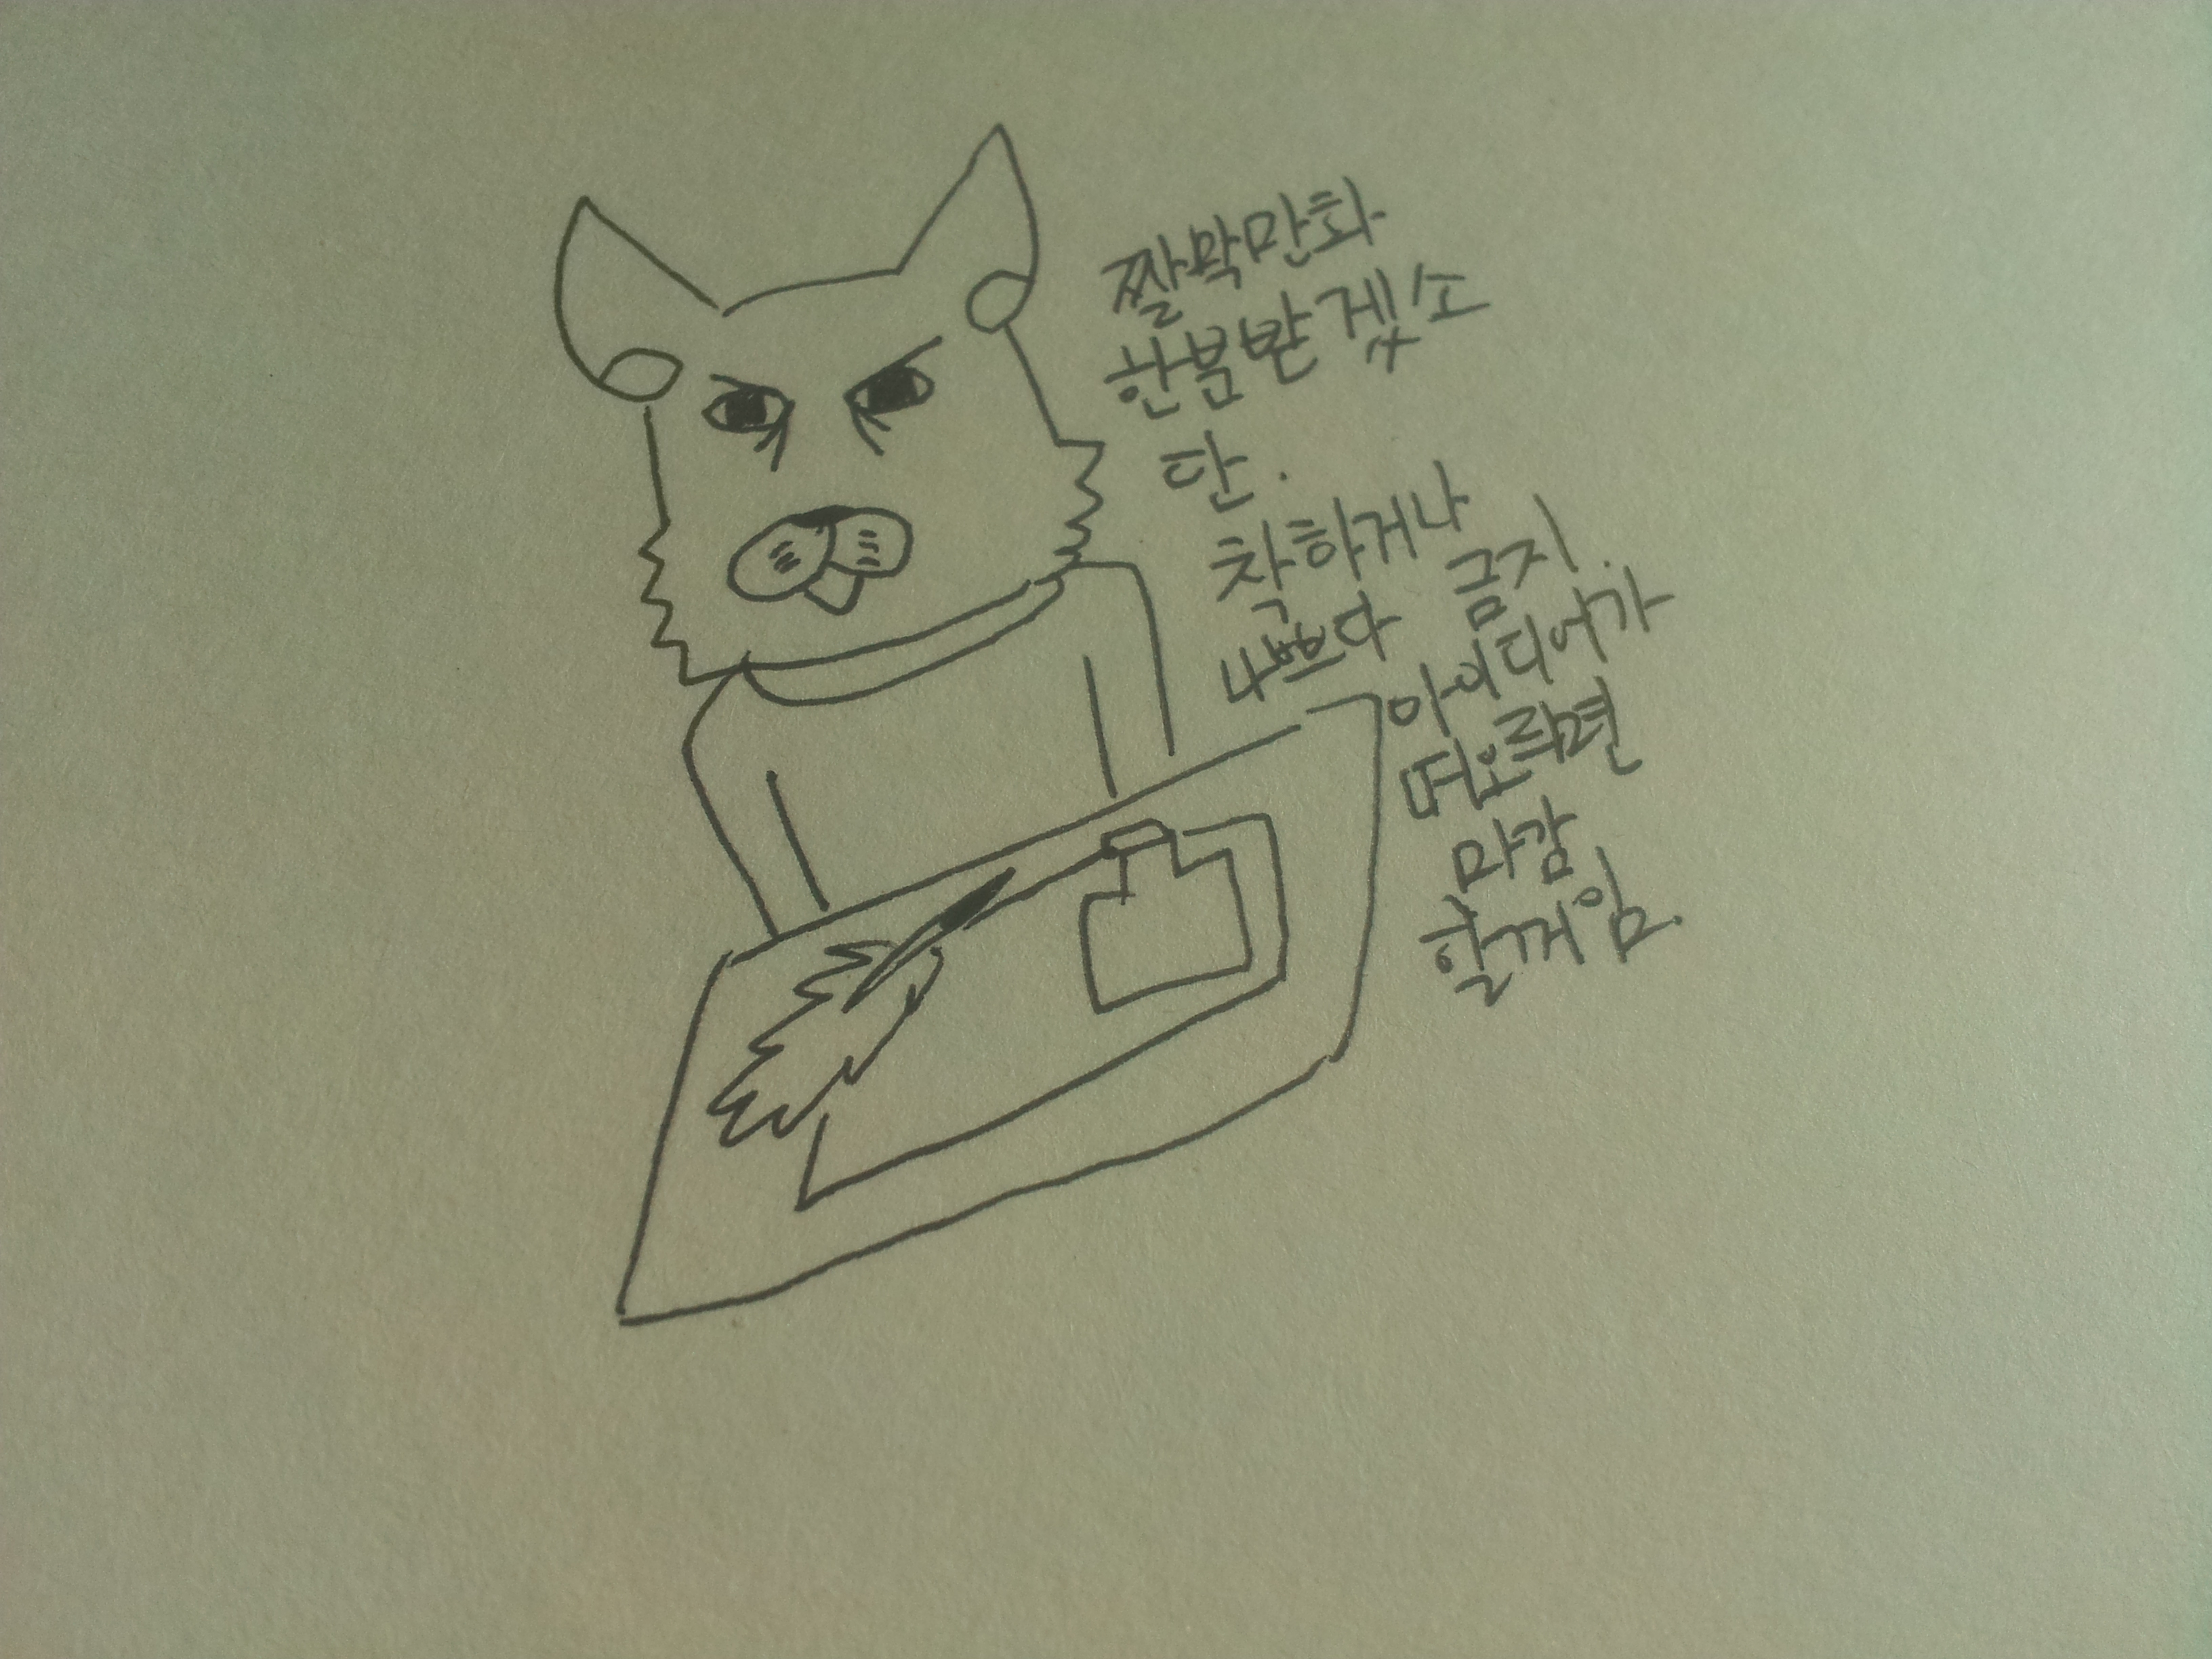 짤막만화
한붐받겟소
단.
착하거나
나쁘다 금지.
아이디어가
떠오르면
마감
할께임.